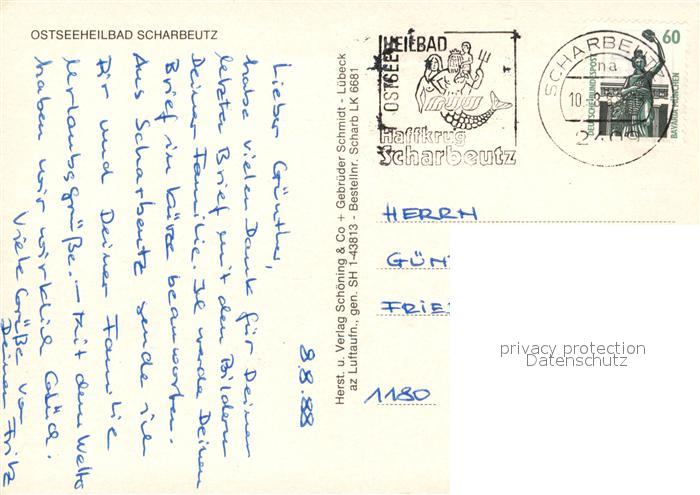 OSTSEEHEILBAD SCHARBEUTZ
Lieber Günther,
habe vielen Dank für Deinen
letzten Brief mit den Bildern
Deiner Familie. Ich werde Deinen
Brief in Kürze beantworten.
Aus Scharbeutz sende ich
Dir und Deiner Familie
Urlaubsgrüße. – Mit dem Wetter
haben wir wirklich Glück.
Viele Grüße von
Deinem Fritz
8.8.88
Herst. u. Verlag Schöning & Co + Gebrüder Schmidt - Lübeck
az Luftaufn., gen. SH 1-43813 - Bestellnr. Scharb LK 6681
OSTSEE HEILBAD
Haffkrug
Scharbeutz
SCHARBEUTZ
na
10.-8.
2409
60
DEUTSCHE BUNDESPOST
BAVARIA MÜNCHEN
HERRN
GÜN
FRIE
1180
privacy protection
Datenschutz